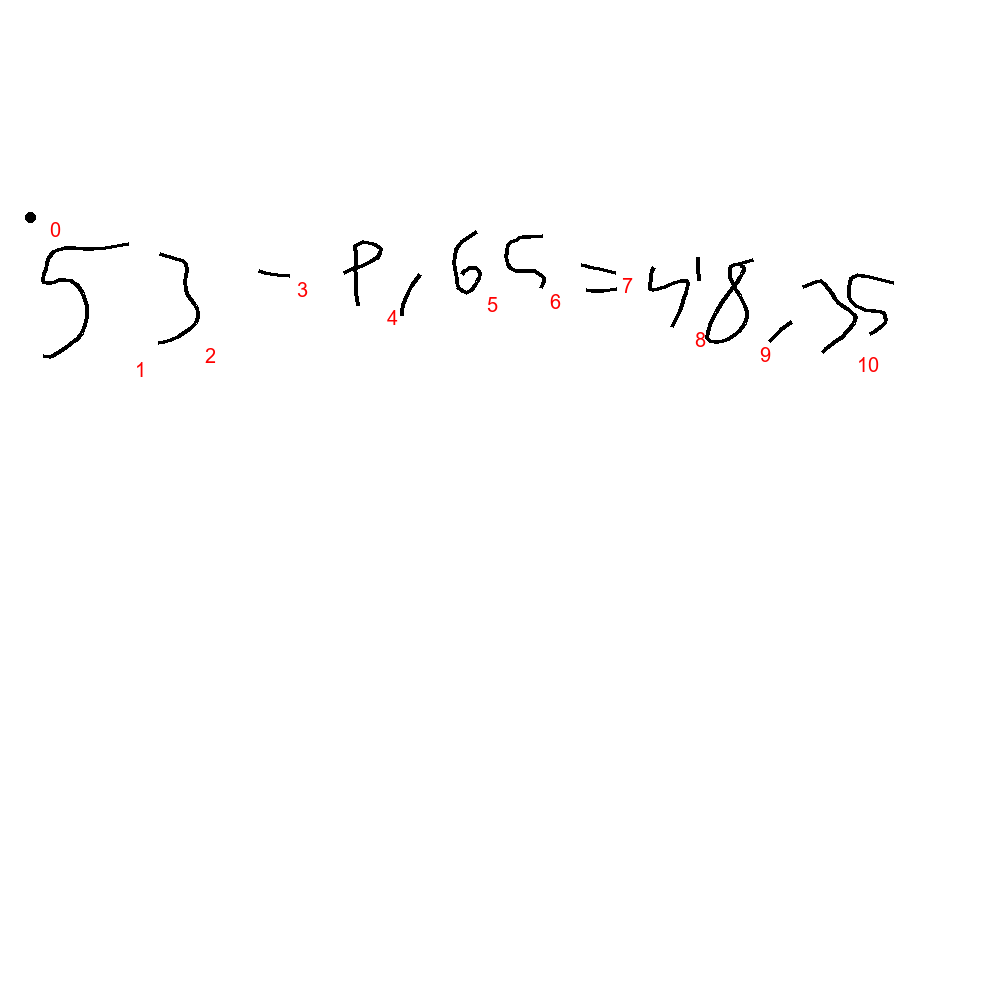 0
53 - P,65 = 48,35
1 2 3 4 5 6 7 8 9 10